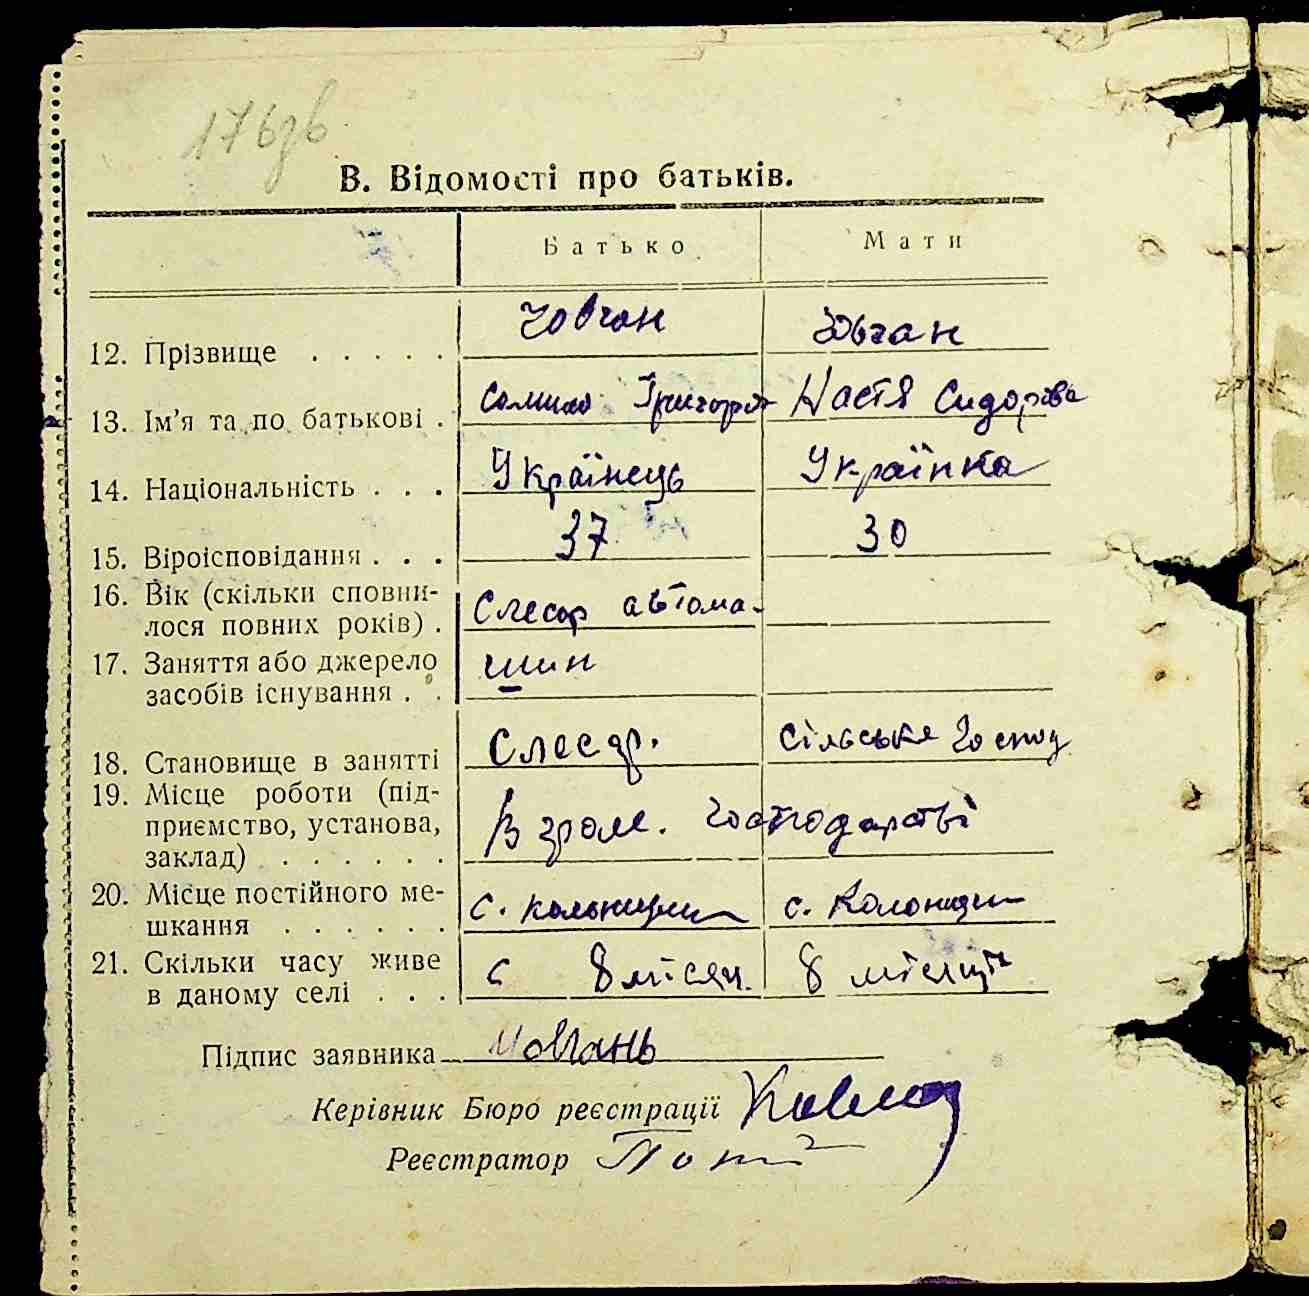 В. Відомості про батьків.
Батько Мати
12. Прізвище . . . . . Човган Човган
13. Ім'я та по батькові . Григоро Настя Сидорівна
14. Національність . . . Українець Українка
15. Віроісповідання . . . 37 30
16. Вік (скільки сповни-
лося повних років) . Слесар автома-
17. Заняття або джерело
засобів існування . . шин
18. Становище в занятті Слесар. Сільське господ
19. Місце роботи (під-
приємство, установа,
заклад) . . . . . . В гром. господарстві
20. Місце постійного ме-
шкання . . . . . . с. с.
21. Скільки часу живе
в даному селі . . . 8 місяц. 8 місяців
Підпис заявника Човгань
Керівник Бюро реєстрації
Реєстратор